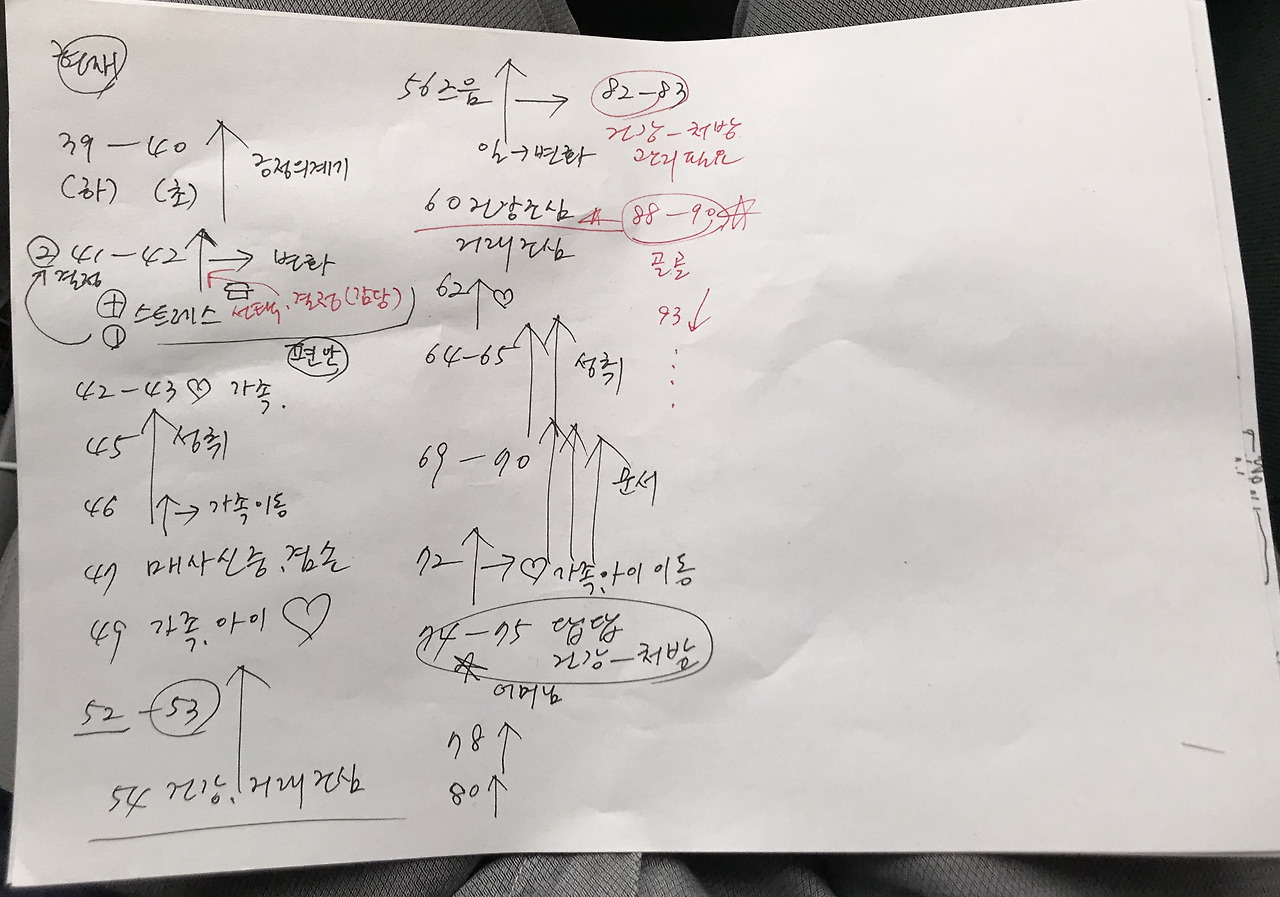 현재
39 — 40 긍정의계기
(하) (초)
② 41 — 42 → 변화
결정
⊕ 스트레스 선택, 결정(감당)
면밀
42 — 43 ♡ 가족.
45 성취
46 → 가족이동
47 매사신중, 겸손
49 가족, 아이 ♡
52 — 53
54 건강, 거래조심
56즈음 →
일→변화
60 건강조심
거래조심
62 ↑ ♡
64-65 성취
69 — 90 문서
72 ↑ → ♡ 가족, 아이 이동
74 — 75 답답
건강 — 처방
어머님
78 ↑
80 ↑
82-83
건강 - 처방
관리필요
88 - 90
골골
93 ↓